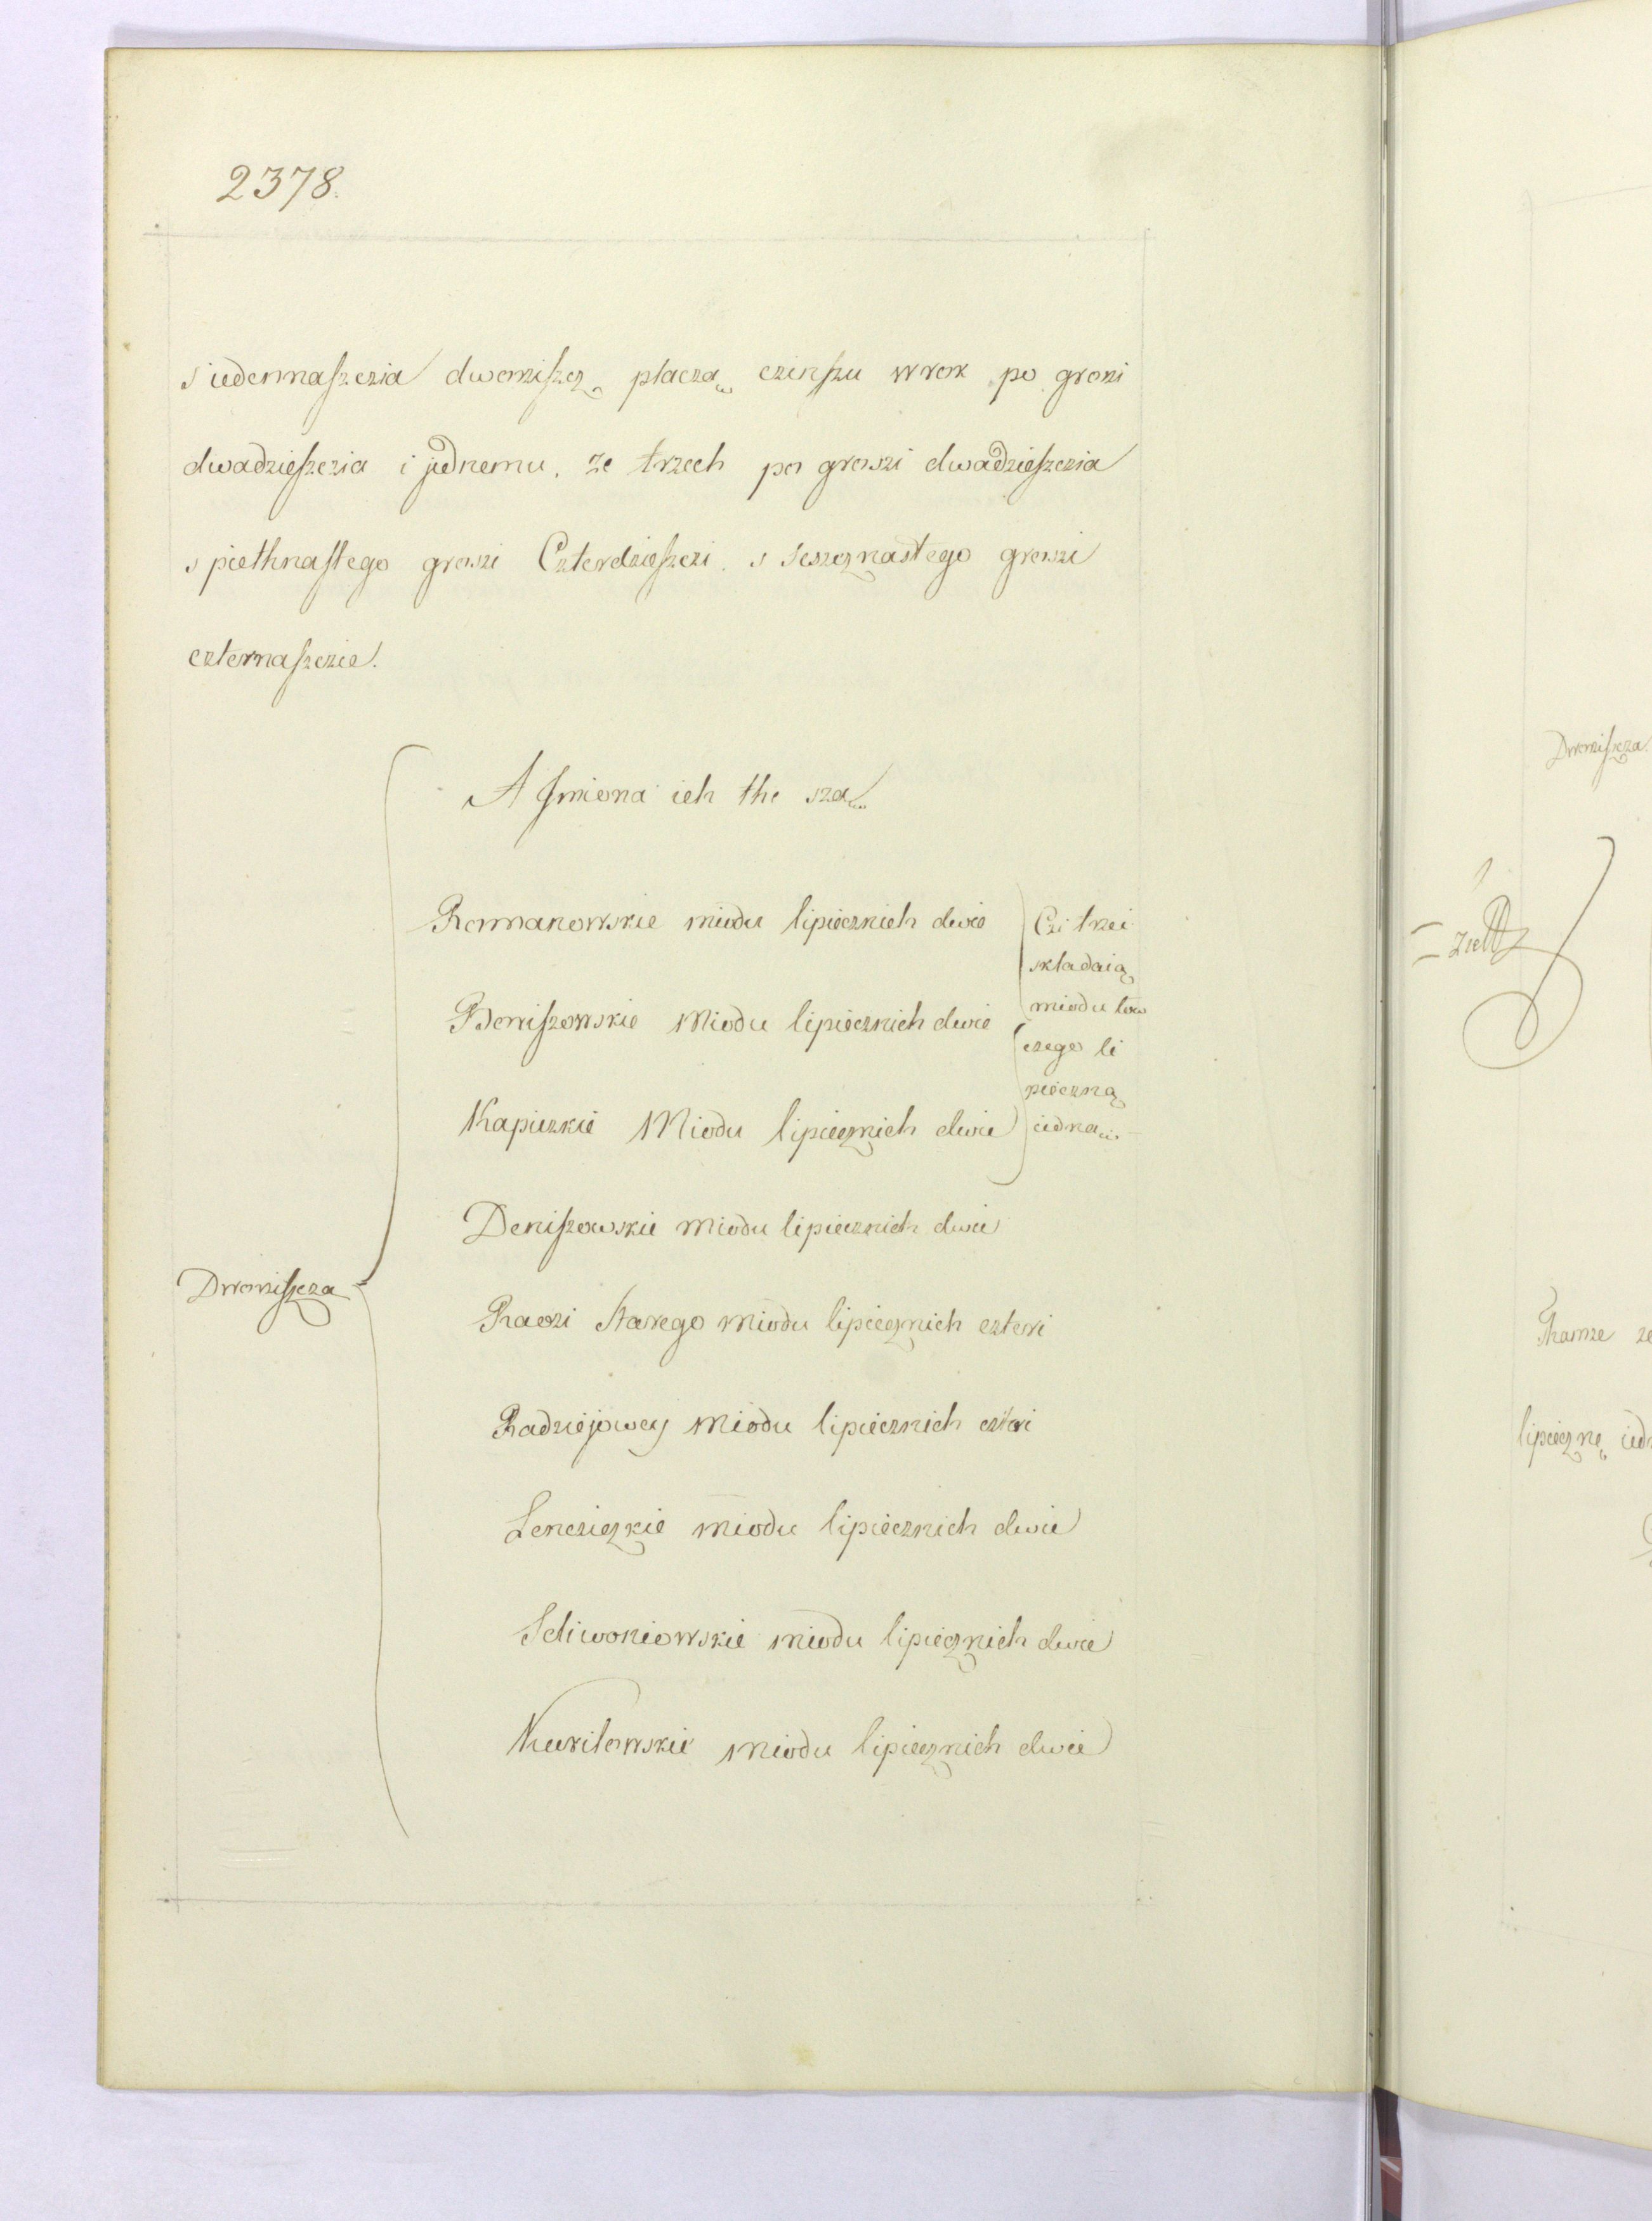 2378.
s iedennaszczia dworziszcz płaczą czinszu w rok po groszi
dwadzieszczia i jednemu. ze trzech po groszi dwadzieszczia
s piethnastego groszi Czterdzieszczi. s szesznastego groszi
czternaszczie.
A Jmiona ich the szą
Romanowskie miodu lipiecznich dwie
Borriszowskie Miodu lipiecznich dwie
Kapiczkie Miodu lipiecznich dwie
Czi trzei
składaią
miodu low
czego li
pieczną
iedną
Deniszowskie miodu lipiecznich dwie
Dworziszcza
starego miodu lipiecznich czteri
Radziejowey miodu lipiecznich czteri
Lencziczkie miodu lipiecznich dwie
Seliwoniowskie miodu lipiecznich dwie
Kuriłowskie miodu lipiecznich dwie
Dworziszcza
Thamze ze
lipiecznę iedn